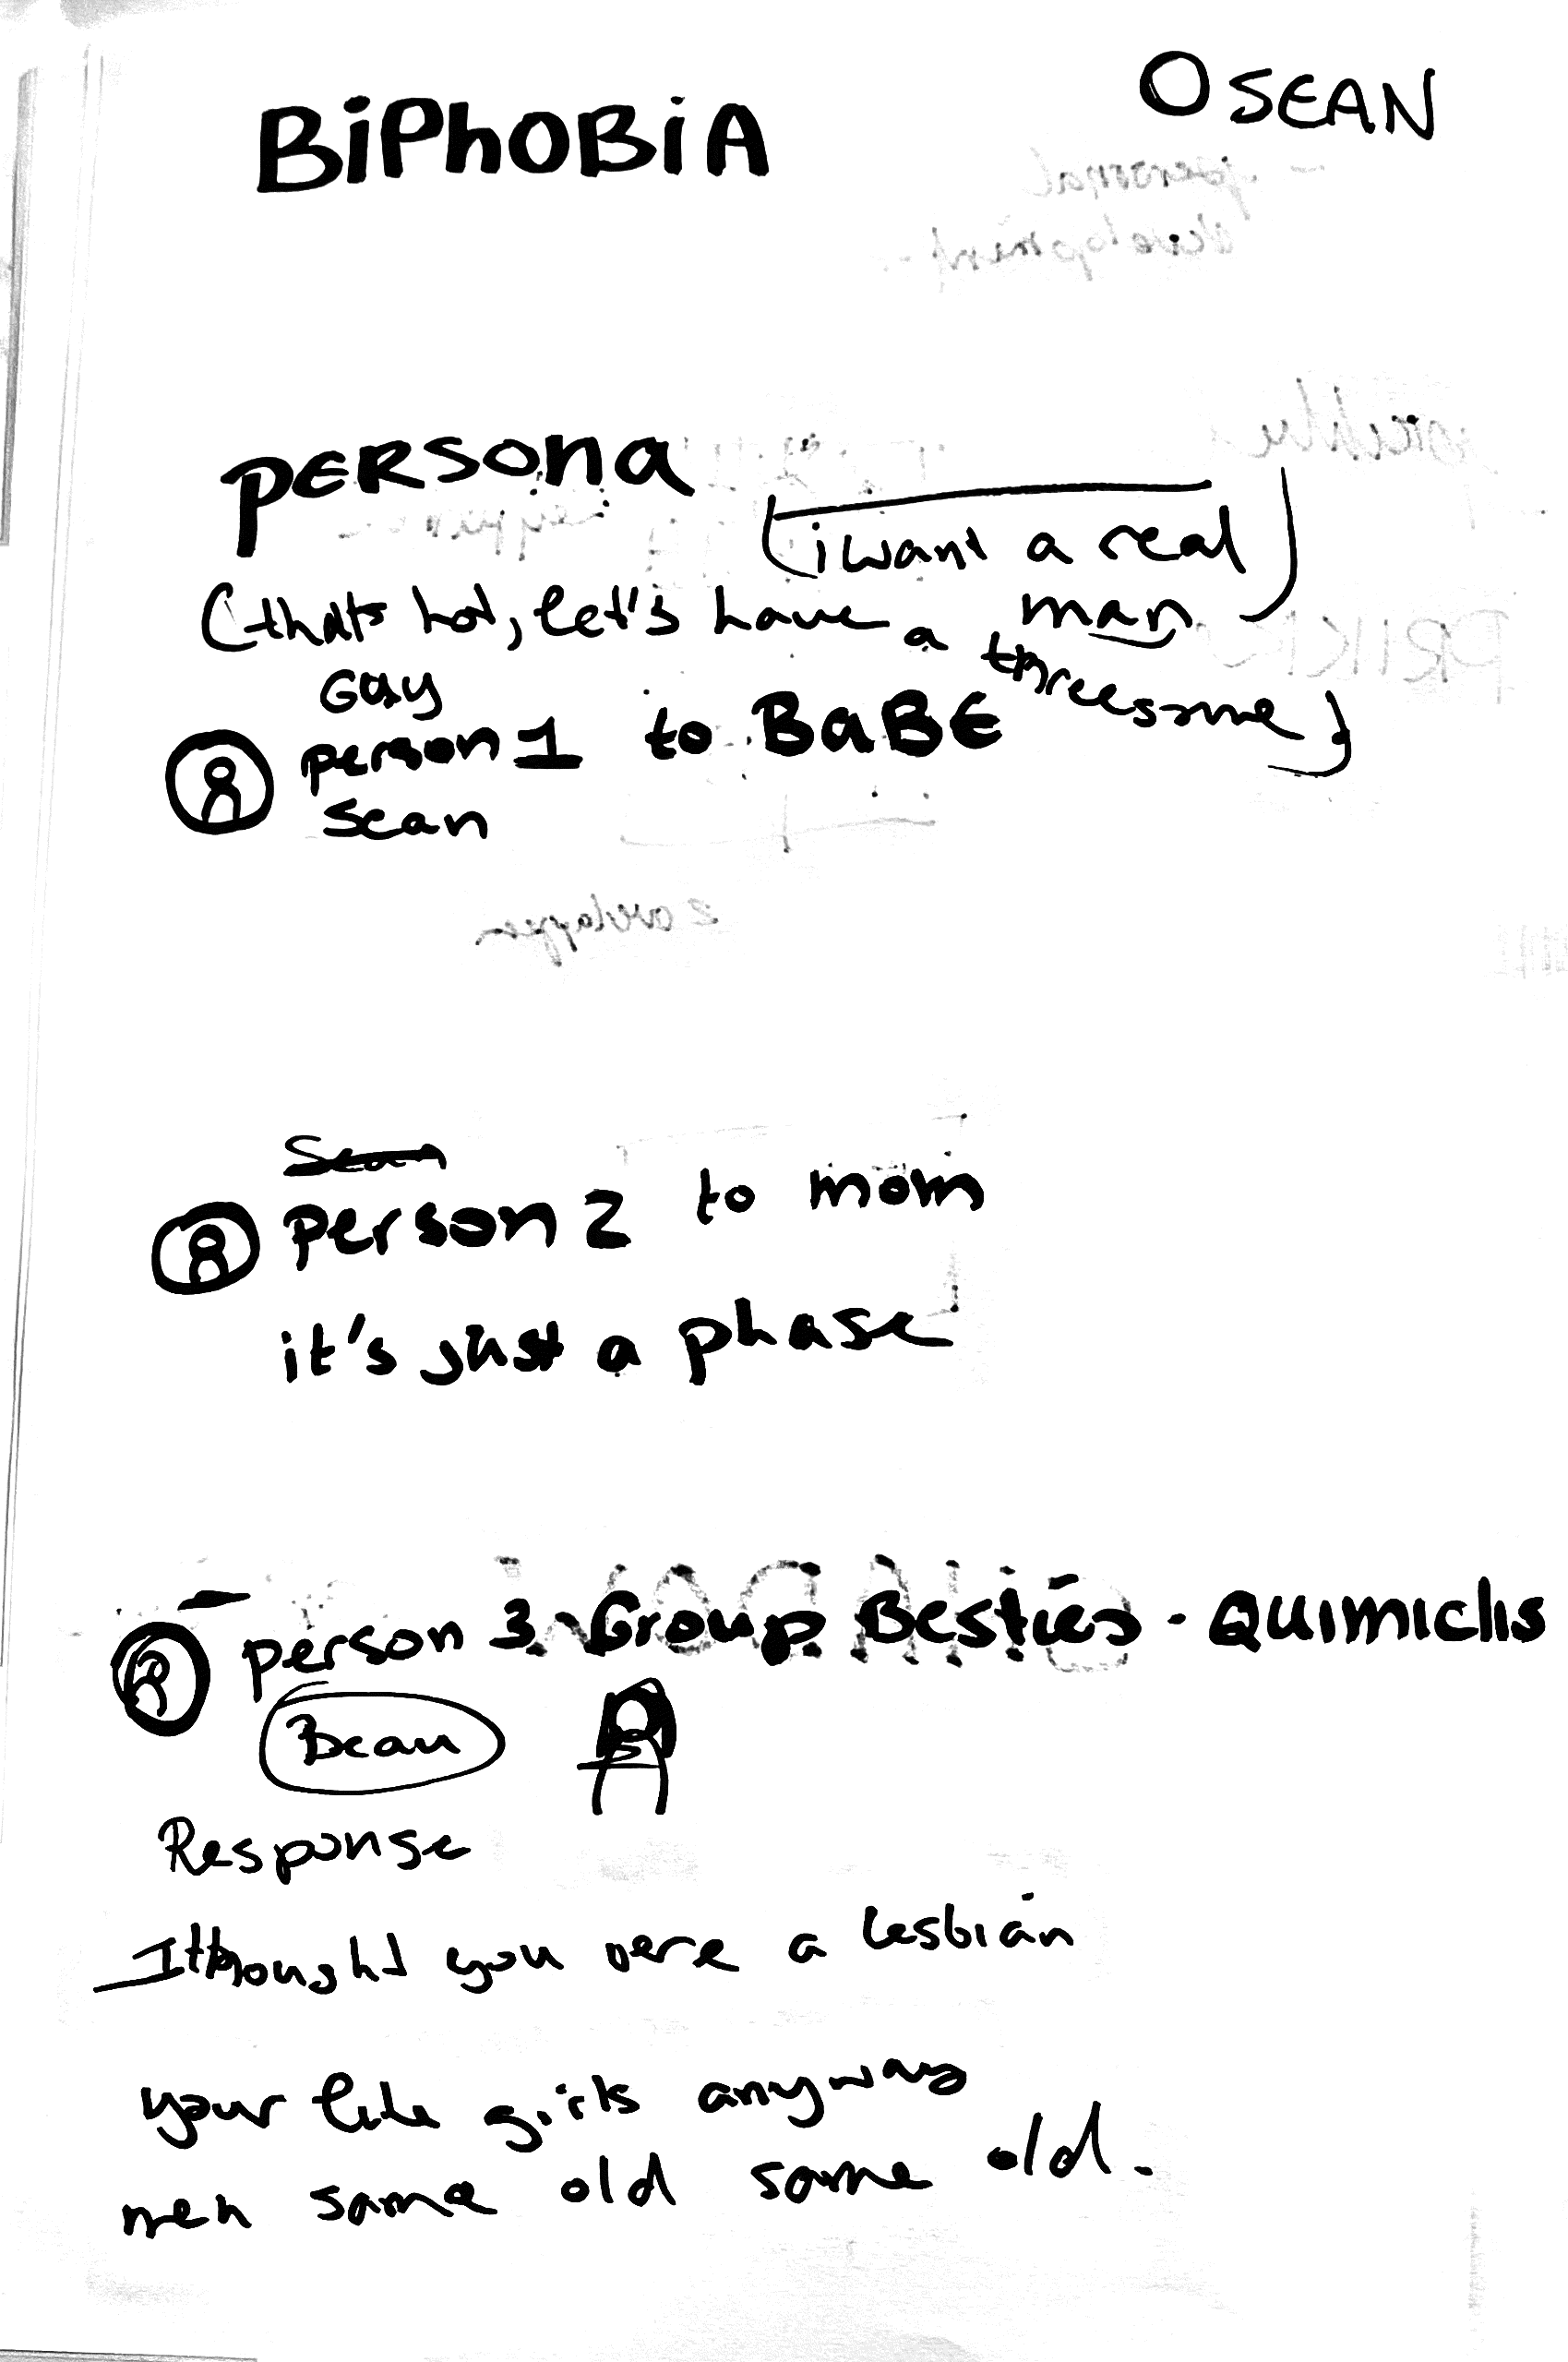 BiPhOBiA
O SEAN
PERSONA
(i want a real
man)
(thats hot, let's have a threesome)
Gay
person 1 to BaBE
Sean
Sean
person 2 to mom
it's just a phase
person 3. Group Besties - QUIMICHIS
Bean
Response
I thought you were a lesbian
your like girls anyway
men same old same old.